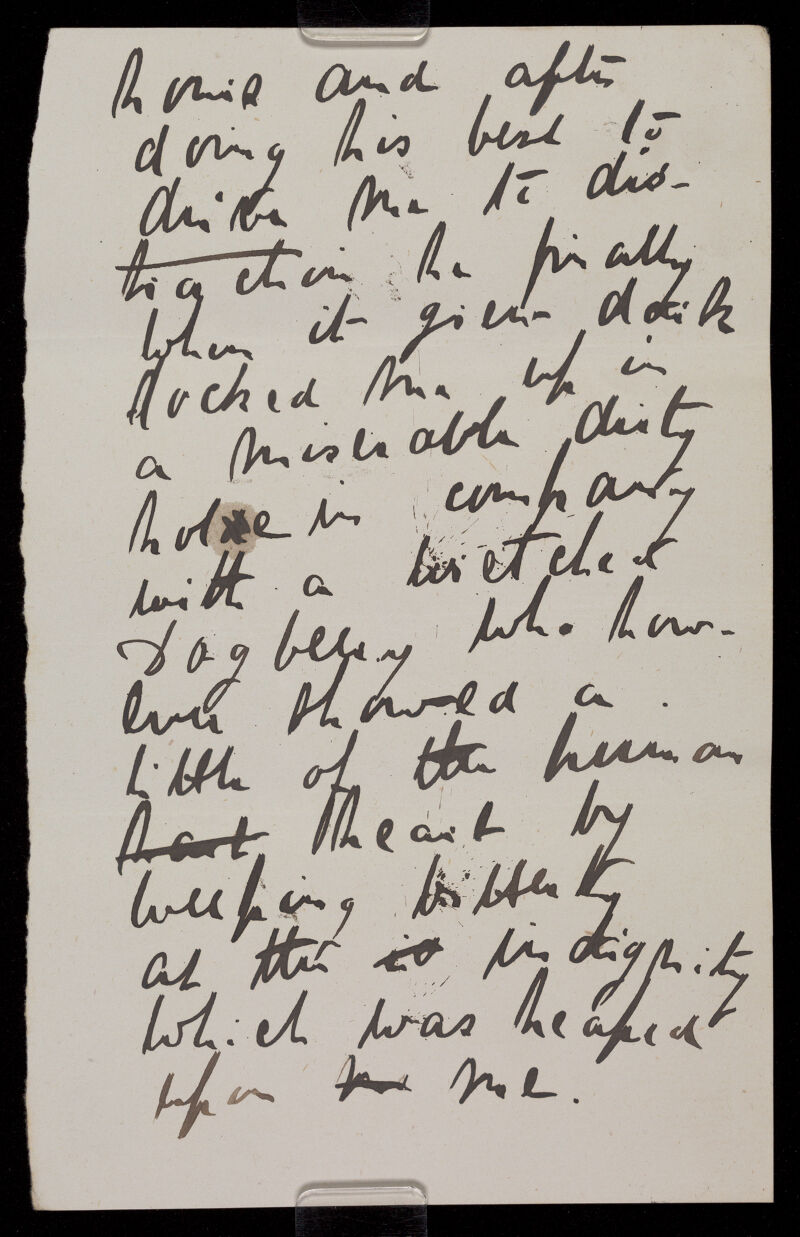 home and after
doing his best to
drive me to dis-
traction he finally
when it grew dark
locked me up in
a miserable dirty
hole in company
with a wretched
Dogberry who how-
ever showed a
little of the human
heart heart by
weeping bitterly
at the in indignity
which was heaped
upon me.